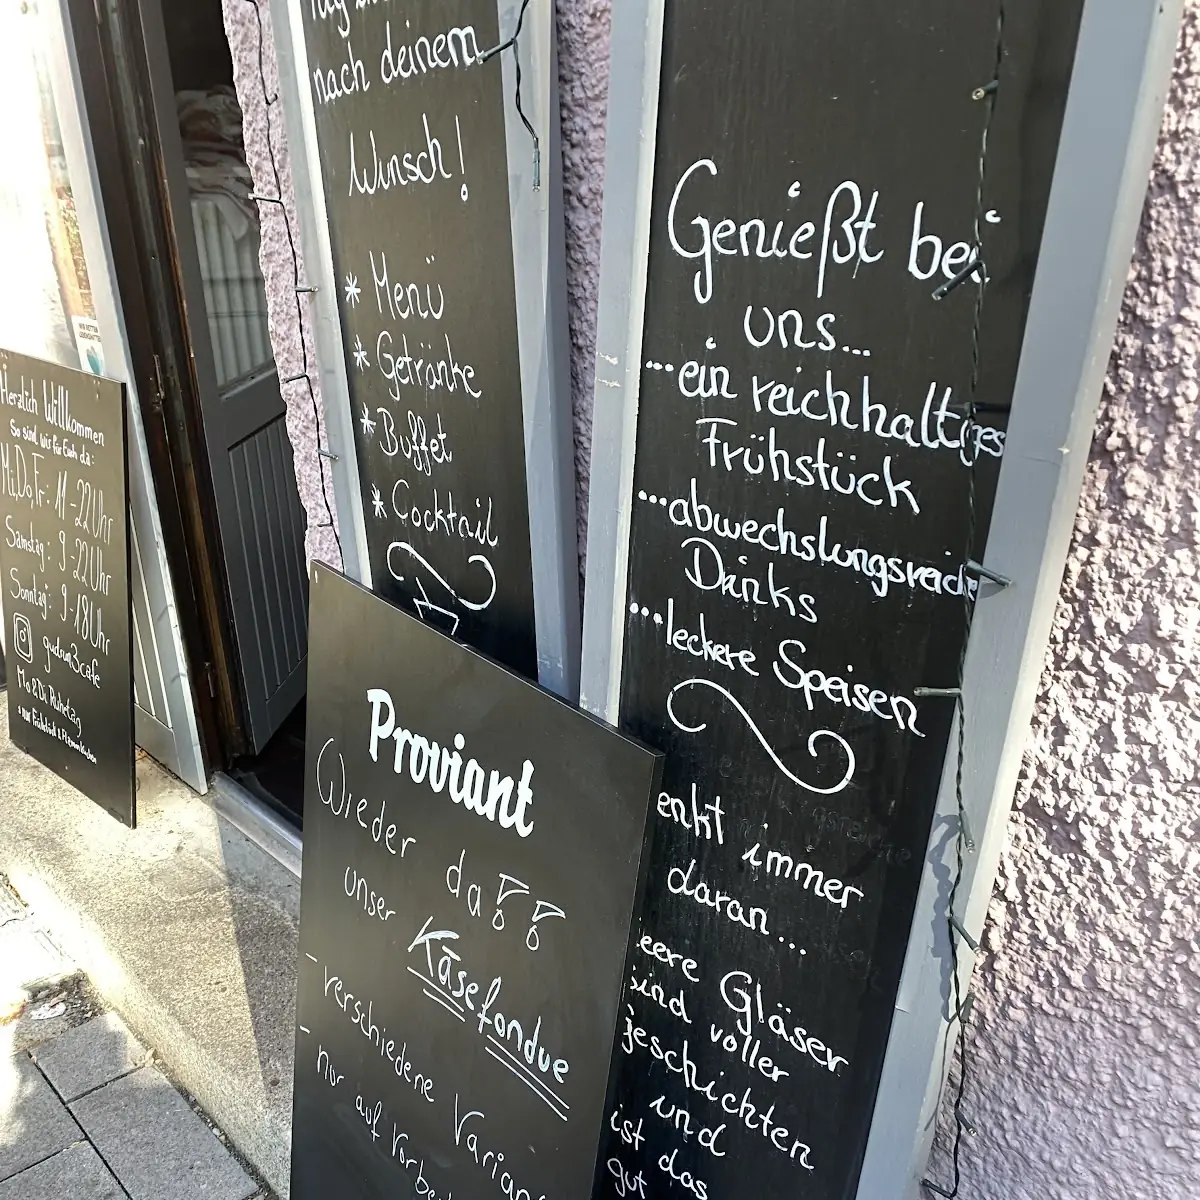 Herzlich Willkommen
So sind wir für Euch da:
Mi, Do, Fr: 11-22Uhr
Samstag: 9-22Uhr
Sonntag: 9-18Uhr
gudrun3cafe
Mo & Di Ruhetag
nach deinem
Wunsch!
* Menü
* Getränke
* Buffet
* Cocktail
Proviant
Wieder da!!
unser
Käsefondue
- verschiedene Varian
- nur auf Vorbe
Genießt bei
uns...
...ein reichhaltiges
Frühstück
...abwechslungsreiche
Drinks
...leckere Speisen
enkt immer
daran...
eere Gläser
sind voller
geschichten
und
ist das
gut